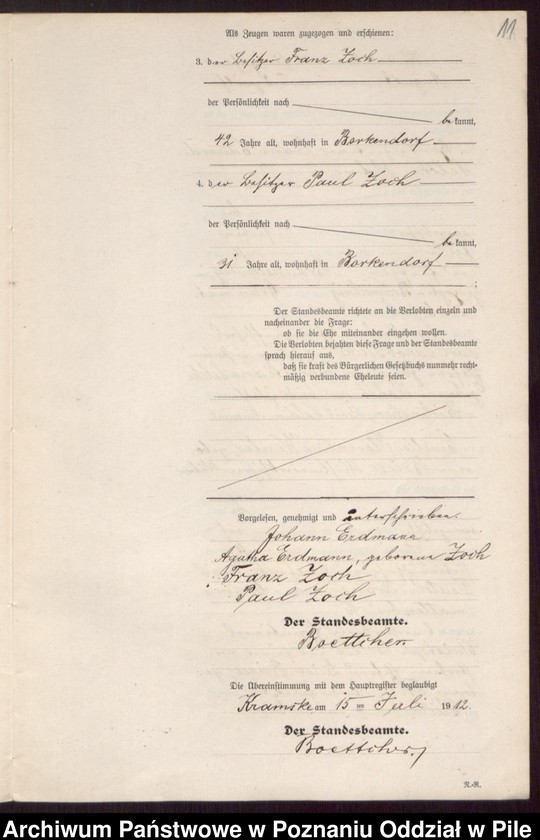 11
Als Zeugen waren zugezogen und erschienen:
3. der Besitzer Franz Zoch
der Persönlichkeit nach
bekannt,
42 Jahre alt, wohnhaft in Borkendorf
4. der Besitzer Paul Zoch
der Persönlichkeit nach
bekannt,
31 Jahre alt, wohnhaft in Borkendorf
Der Standesbeamte richtete an die Verlobten einzeln und
nacheinander die Frage:
ob sie die Ehe miteinander eingehen wollen.
Die Verlobten bejahten diese Frage und der Standesbeamte
sprach hierauf aus,
daß sie kraft des Bürgerlichen Gesetzbuchs nunmehr recht-
mäßig verbundene Eheleute seien.
Vorgelesen, genehmigt und unterschrieben.
Johann Erdmann
Agatha Erdmann, geborene Zoch
Franz Zoch
Paul Zoch
Der Standesbeamte.
Boettcher
Die Übereinstimmung mit dem Hauptregister beglaubigt
Kramske am 15 ten Juli 1912.
Der Standesbeamte.
Boettcher.
N.-R.
Archiwum Państwowe w Poznaniu Oddział w Pile